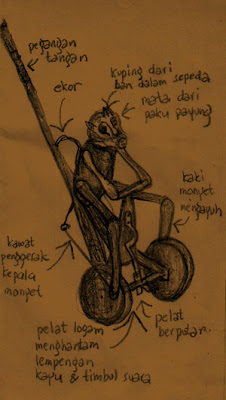 pegangan
tangan
ekor
kuping dari
ban dalam sepeda
mata dari
paku payung
kaki
monyet
mengayuh
kawat
penggerak
kepala
monyet
pelat
berputar
pelat logam
menghantam
lempengan
kayu & timbul suara